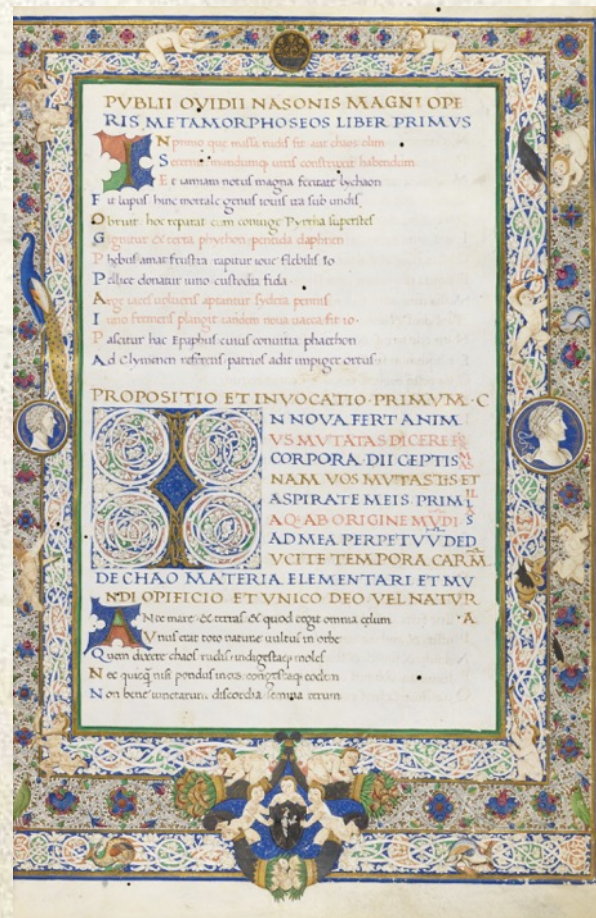 PVBLII OVIDII NASONIS MAGNI OPE
RIS METAMORPHOSEOS LIBER PRIMVS
IN primo que missa rudis fit aut chaos olim
S
Et iamiam notus magna feritate lychaon
Fit lupus hinc mortale genus iouis ira sub undis
Obruit hoc reparat cum coniuge Pyrrha superstes
Gignitur ex terra phython perfida daphnen
Phebus amat frustra rapitur ioue flebilis Io
Pellice donatur iuno custodia fida
Arge iaces uolucris aptantur sydera pennis
Iuno
Pascitur hac Epaphus cuius conuitia phaethon
Ad Clymenen referens patrios adit impiger ortus
PROPOSITIO ET INVOCATIO PRIMVM C
IN NOVA FERT ANIM
VS MVTATAS DICERE FOR
CORPORA DII CEPTIS MAS
NAM VOS MVTASTIS ET IL
ASPIRATE MEIS PRIM LAS
AQ AB ORIGINE MVDI
AD MEA PERPETVV DED
VCITE TEMPORA CARM
DE CHAO MATERIA ELEMENTARI ET MV
NDI OPIFICIO ET VNICO DEO VEL NATVR
ANte mare & terras & quod tegit omnia celum A
Vnus erat toto nature uultus in orbe
Quem dixere chaos rudis indigestaq moles
Nec quicq nisi pondus iners congestaq eodem
Non bene iunctarum discordia semina rerum